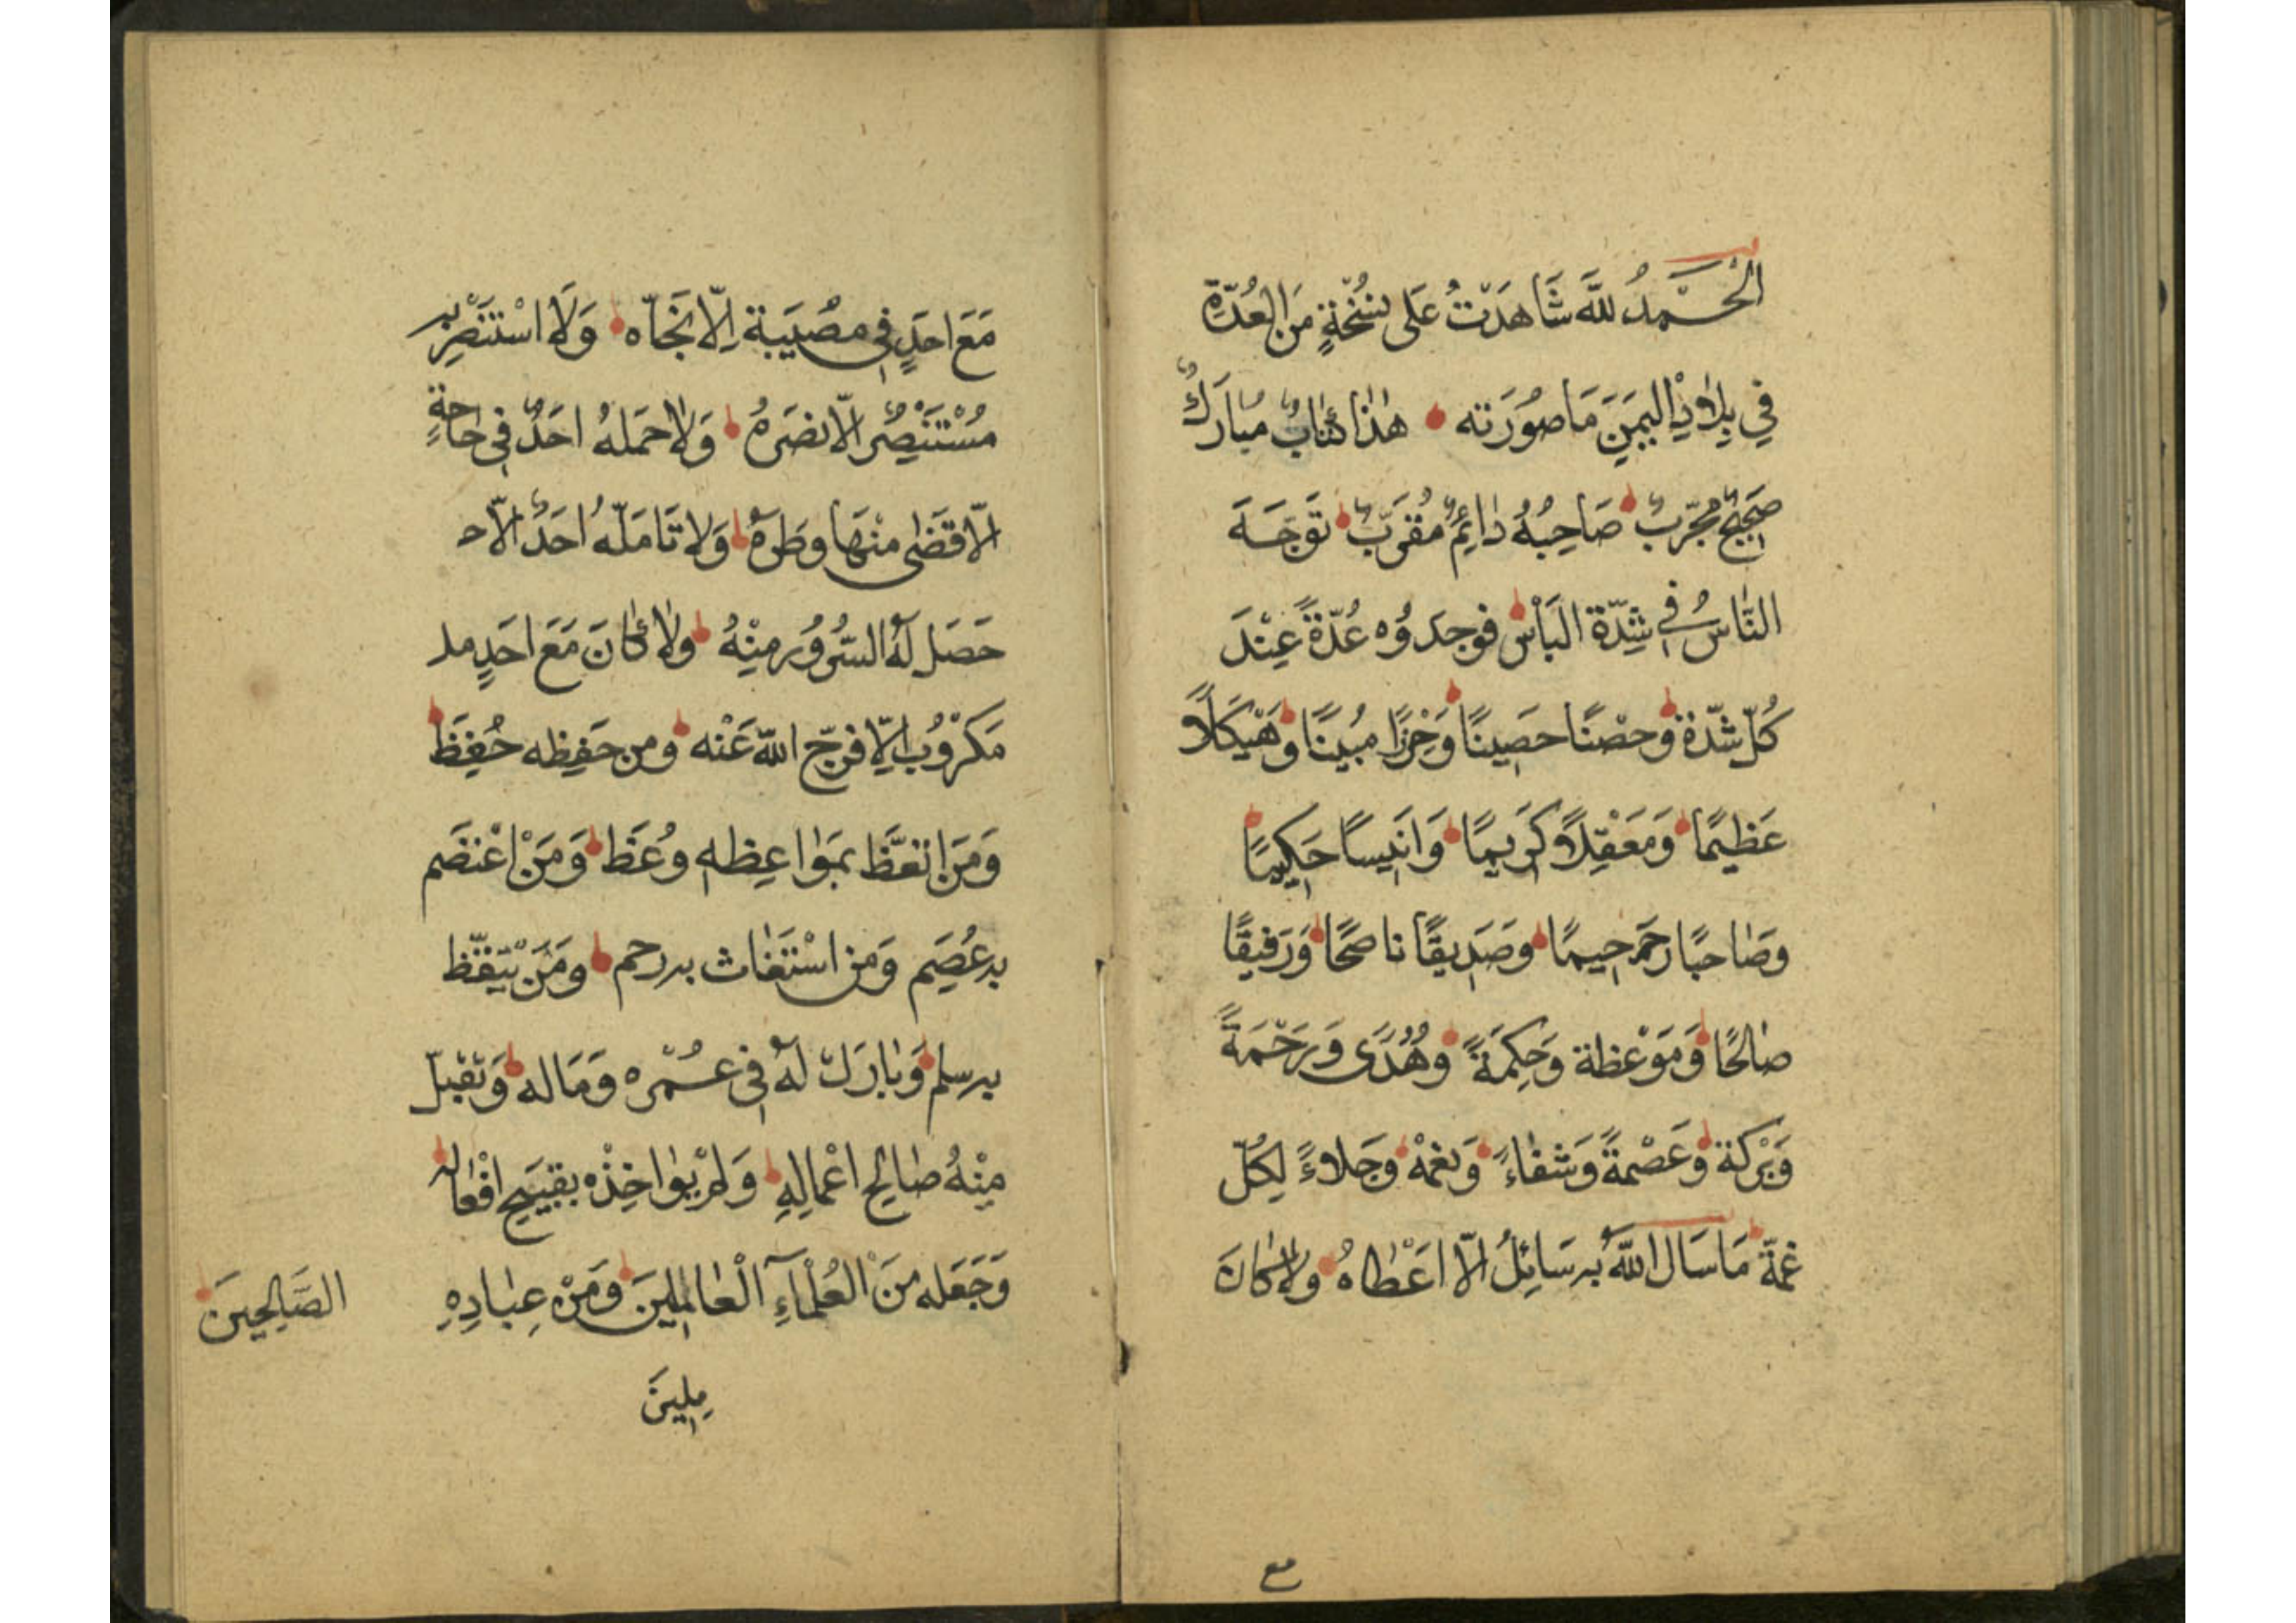 الْحَمْدُ للَّه شَاهَدْتُ عَلى نُسْخَةٍ مِنَ العُدَّةِ
في بِلَادِ اليمَنِ مَا صُورَته هٰذا كتَابٌ مُبارَكٌ
صَحِيحٌ مُجرّبٌ صَاحِبُهُ دٰائِمٌ مُقرَّبٌ توَجّهَ
النّاسُ في شِدّة البَأْس فوجَدوُه عُدّةً عِنْدَ
كُلّ شدّة وَحصْنًا حَصِينًا وَحِرْزًا مُبينًا وَهَيْكَلاً
عَظيمًا وَمَعْقِلاً كَريمًا وَانَيسًا حَكيمًا
وصَاحبًا رحيمًا وصَدِيقًا ناصحًا وَرَفيقًا
صٰالحًا وَمَوْعظة وَحِكمَةً وهُدًى وَرَحْمَةً
وَبَركة وَعَصْمةً وَشفٰاءً وَنعمْة وَجَلاءً لِكُلّ
غمّة مَا سَال اللّهَ به سَائِلُ الّا اعَطٰاهُ ولا كانَ
مع
مَعَ احَدٍ في مصُيَبة اِلّا نجَّاه وَلَا اسْتَنْصِر به
مُسْتَنْصِرٌ الّا نصَرهُ وَلا حمَلهُ احَدٌ في حَاجَةٍ
الّا قضَى منْهَا وطَرهُ وَلا تَامَلّهُ احَدٌ الّا حـ
حَصَل لَهُ السُّروُر مِنْهُ ولا كانَ مَعَ احَدٍ
مَكرْوُبٍ الّا فرّج اللّه عَنْه ومن حَفِظه حُفِظَ
وَمَن اتعَّظَ بمَواعِظهِ وُعَظ وَمَنْ اعْتصَم
به عُصِم وَمن اسْتَغٰاث به رحم ومَنْ تيَقّظ
به سلم وَبٰارَك لَهُ في عُمْره وَمَاله وَتقبّل
مِنْهُ صٰالح اعْمالِهِ وَلم يُواخِذْه بقبَيح افْعاله
وَجَعَله مِنَ الْعُلمٰآءِ الْعٰاملينَ وَمَنْ عِبٰادِهِ الصَّالِحينَ
مِلينَ